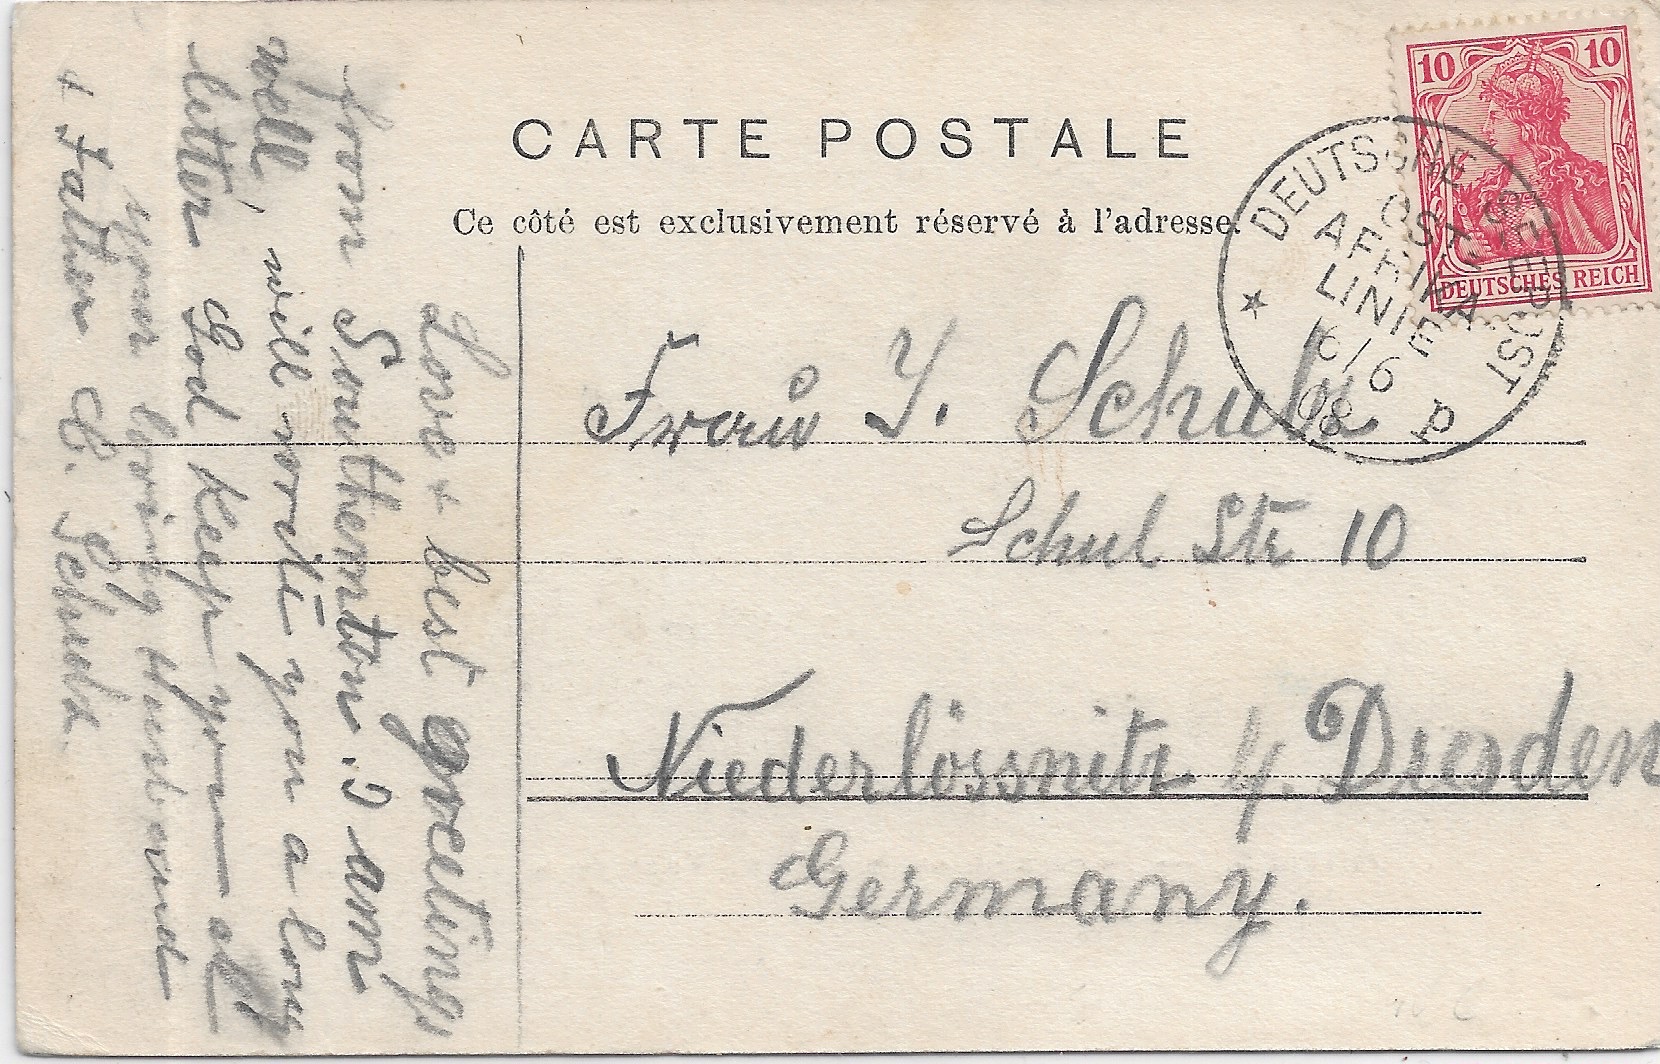 CARTE POSTALE
Ce côté est exclusivement réservé à l'adresse.
10 10
DEUTSCHES REICH
DEUTSCHE SEEPOST
OST-
AFRIKA
LINIE
6/6
08
p
Love + best greeting,
from Southemton. I am
well, will write you a long
letter God keep you all
Your loving Husband
+ Father E.
Frau J.
Schul Str 10
Niederlössnitz b. Dresden
Germany.